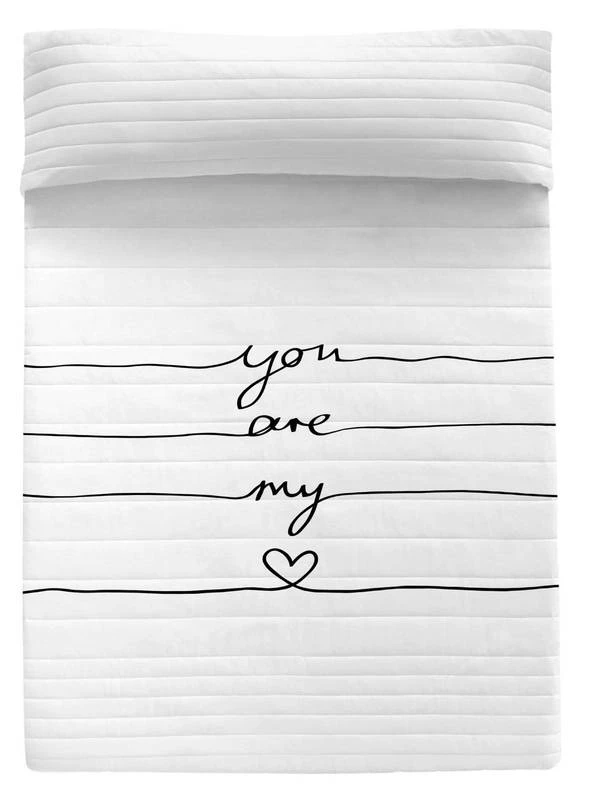 you
are
my